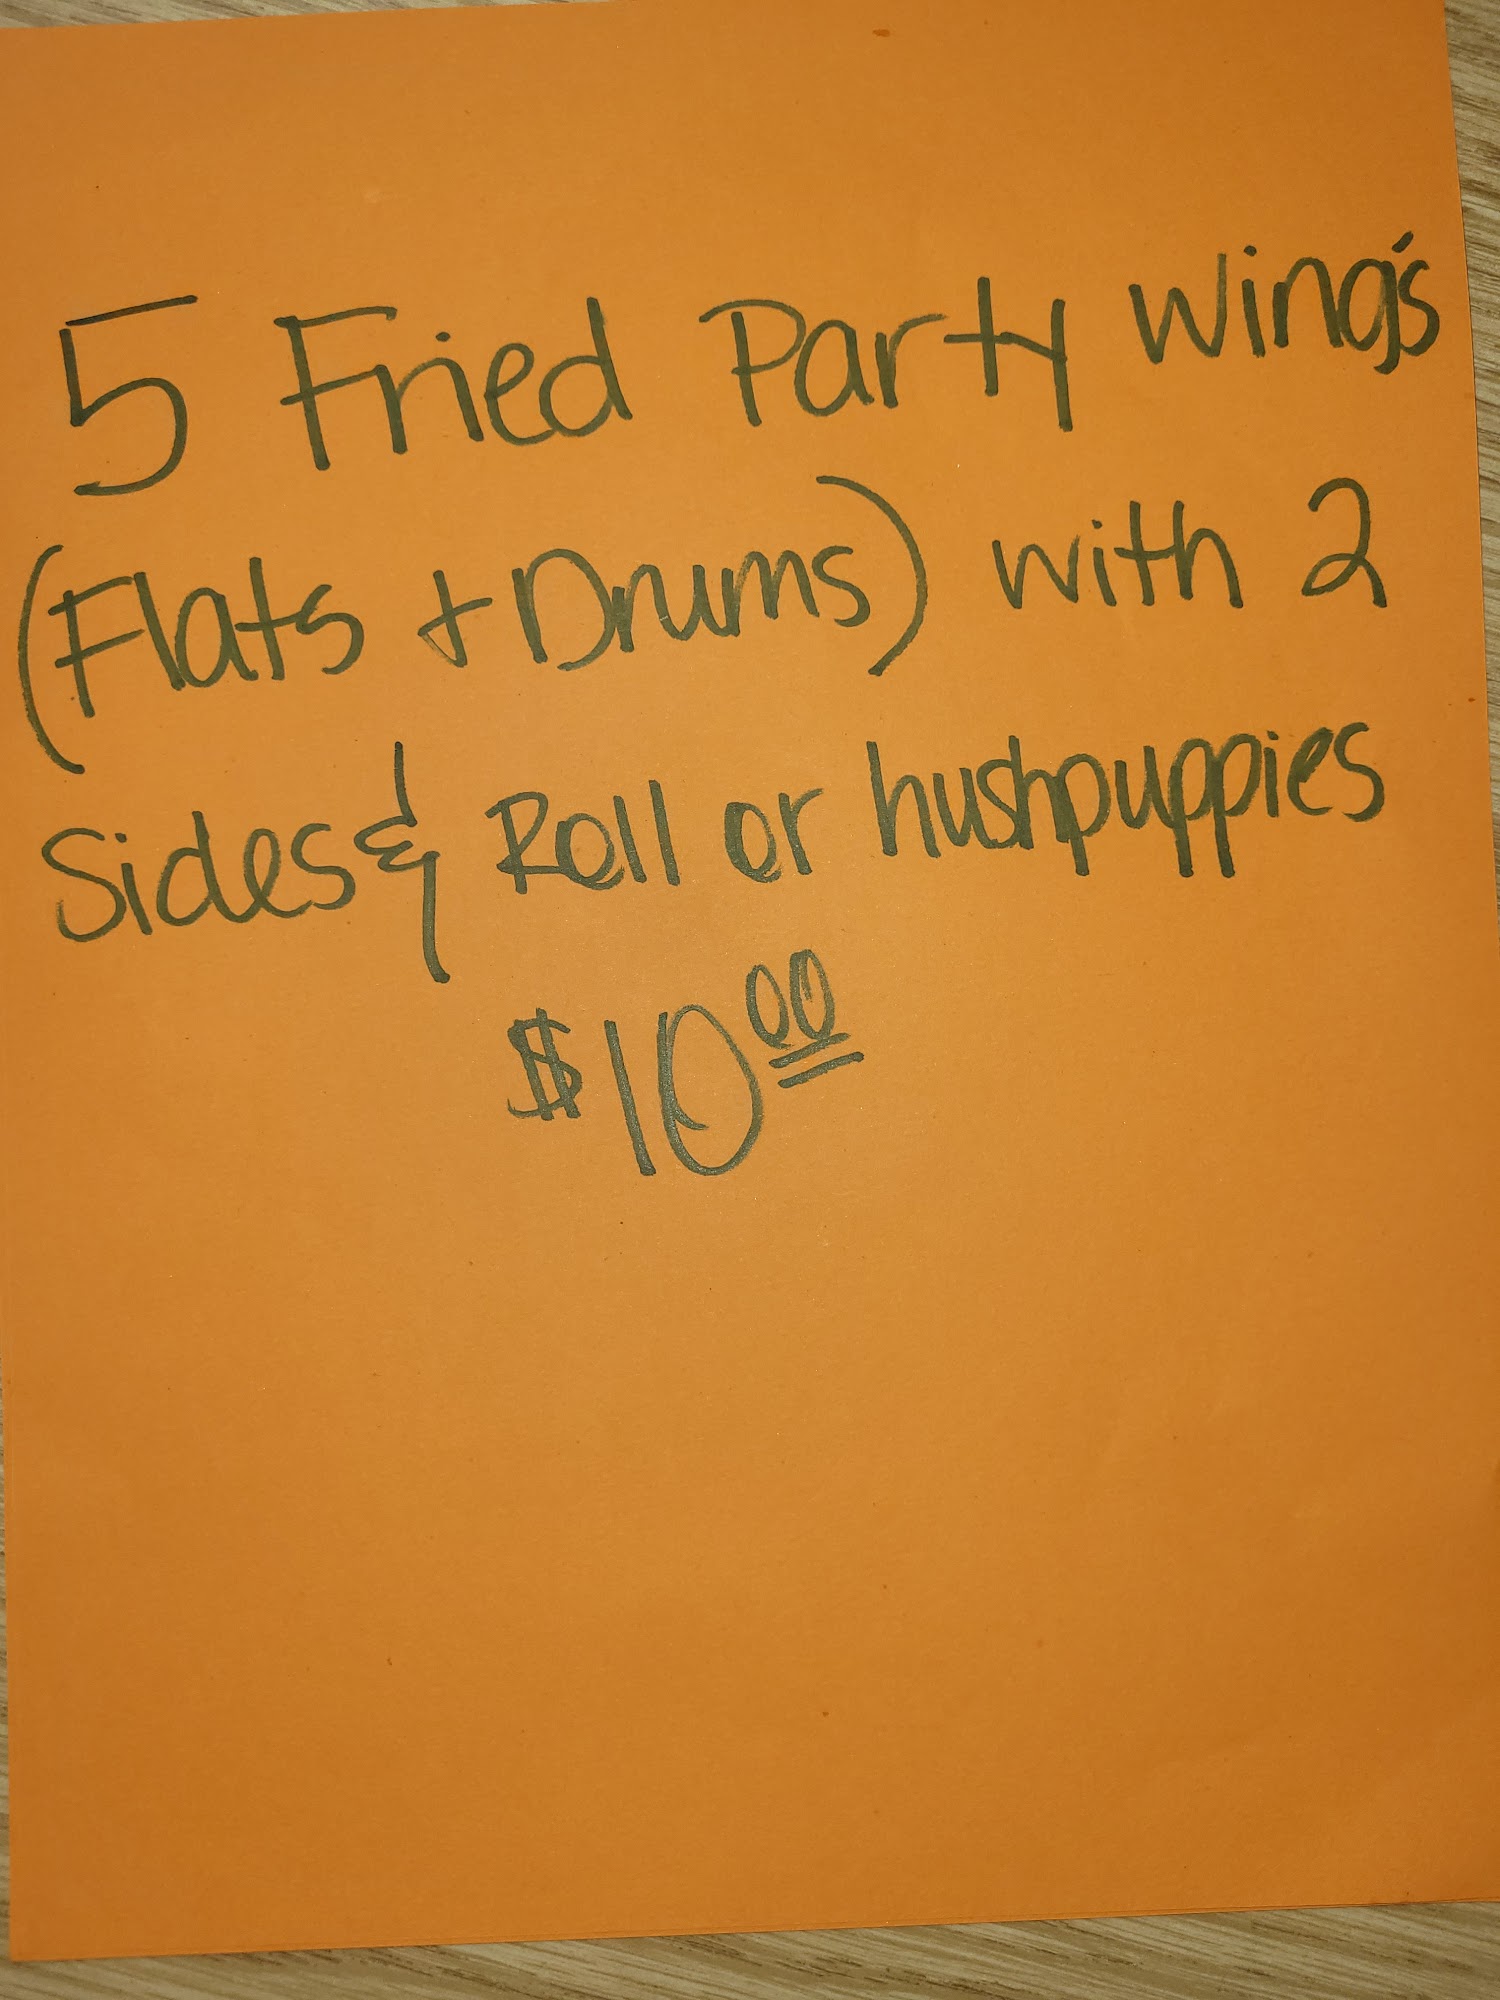 5 Fried Party Wing's
(Flats + Drums) with 2
Sides & Roll or hushpuppies
$10.00